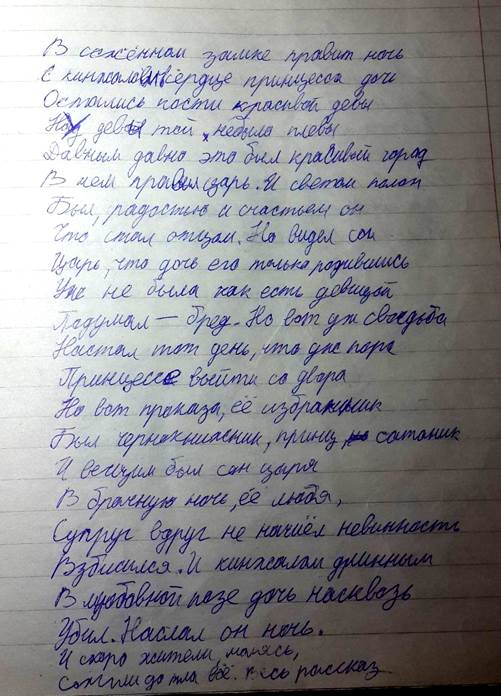 В сожжённом замке правит ночь
С кинжалом в сердце принцесса дочь
Остались кости красивой девы
Но у девы той небыло плевы
Давным давно это был красивый город
В нем правил царь. И светом полон
Был, радостью и счастьем он
Что стал отцом. Но видел сон
Царь, что дочь его только родившись
Уже не была как есть девицой
Подумал — бред. Но вот уж свадьба
Настал тот день, что уж пора
Принцессе выйти со двора
Но вот проказа, её избранник
Был чернокнижник, принц, сатаник
И вещим был сон царя
В брачную ночь, её любя,
Супруг вдруг не нашёл невинность
Взбисился. И кинжалом длинным
В любовной позе дочь насквозь
Убил. Наслал он ночь.
И скоро жители, молясь,
Сожгли до тла всё. весь рассказ